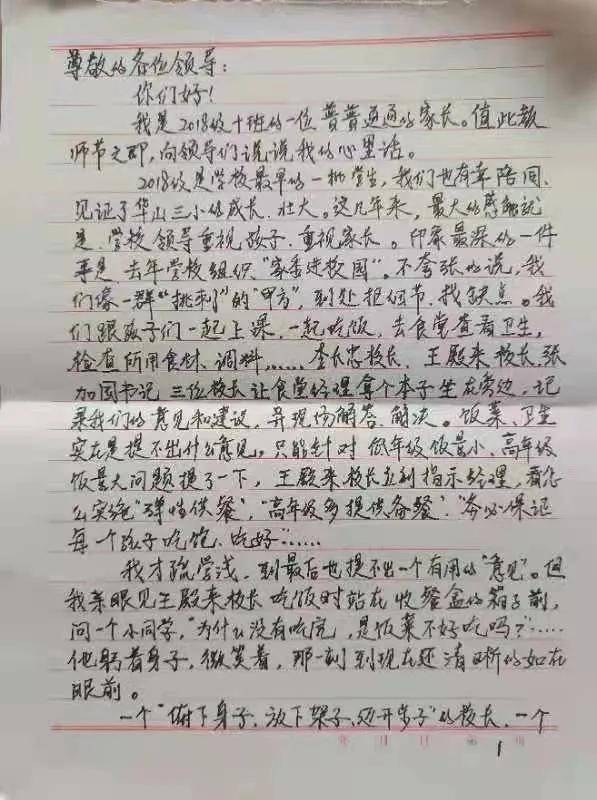 尊敬的各位领导：
你们好！
我是2018级十班的一位普普通通的家长。值此教
师节之即，向领导们说说我的心里话。
2018级是学校最早的一批学生，我们也有幸陪同、
见证了华山三小的成长、壮大。这几年来，最大的感触就
是学校领导重视孩子、重视家长。印象最深的一件
事是去年学校组织“家委进校园”。不夸张的说，我
们像一群“挑刺”的“甲方”，到处抠细节、找缺点。我
们跟孩子们一起上课、一起吃饭，去食堂查看卫生，
检查所用食材、调料……李长忠校长、王殿来校长、张
加国书记三位校长让食堂经理拿个本子坐在旁边，记
录我们的意见和建议，并现场解答、解决。饭菜、卫生
实在是提不出什么意见，只能针对低年级饭量小、高年级
饭量大问题提了一下，王殿来校长立刻指示经理，看怎
么实施“弹性供餐”，“高年级多提供备餐”，“务必保证
每一个孩子吃饱、吃好”……
我才疏学浅，到最后也提不出一个有用的“意见”。但
我亲眼见王殿来校长吃饭时站在收餐盒的箱子前，
问一个小同学，“为什么没有吃完，是饭菜不好吃吗？”……
他躬着身子，微笑着，那一刻到现在还清晰的如在
眼前。
一个“俯下身子、放下架子、迈开步子”的校长，一个
年 月 日 第 页
1